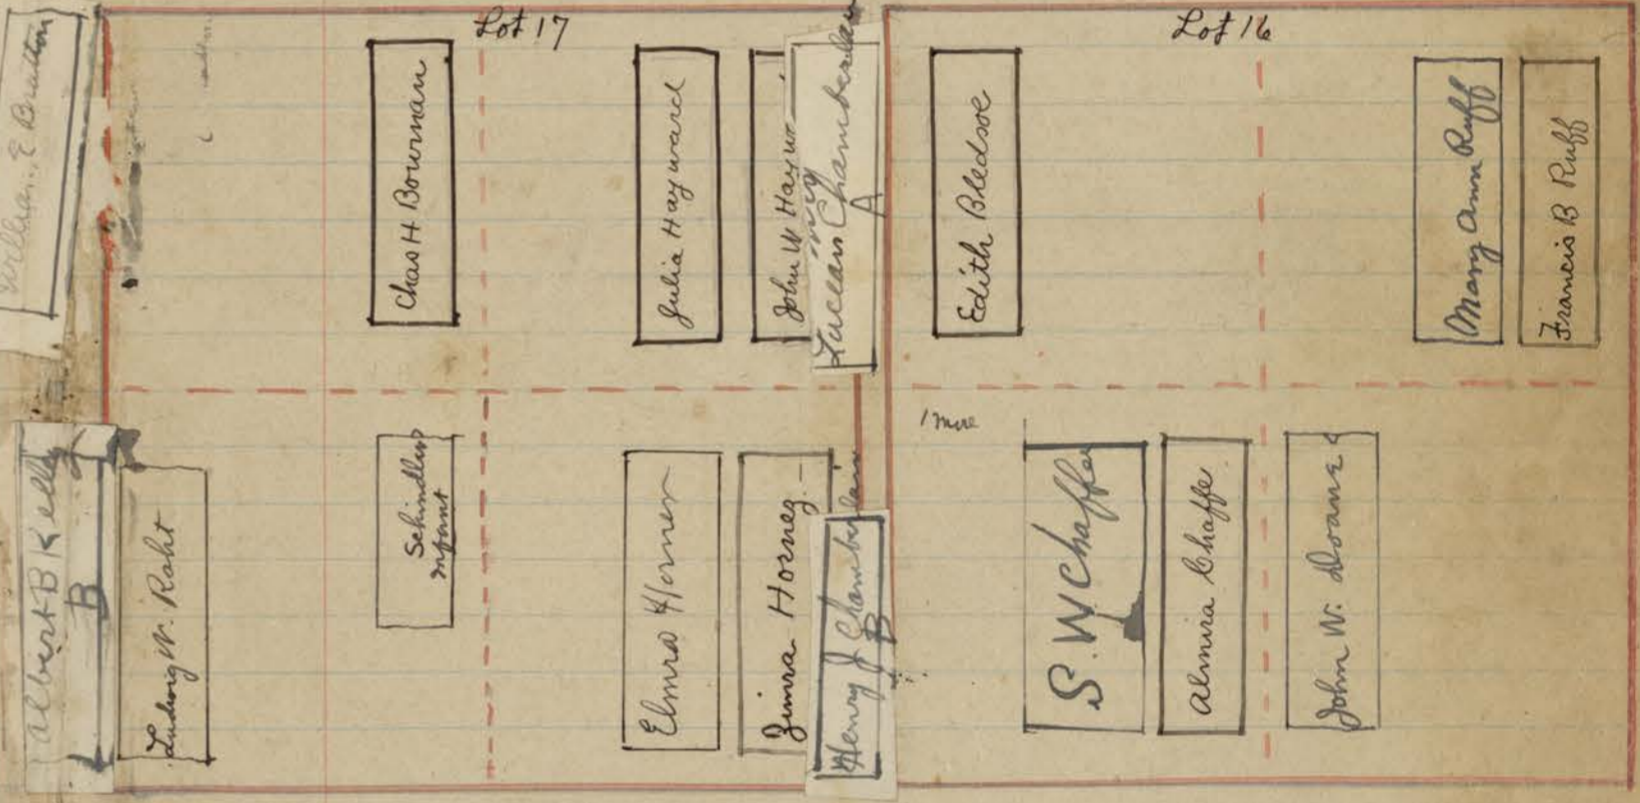 Lot 17
Lot 16
E Britton
Chas H. Bowman
Julia Hayward
John W Hayw
Lucean Chamberlain
A
Edith Bledsoe
Mary Ann Ruff
Francis B Ruff
1 more
Albert B Kelley
B
Ludwig W. Raht
Schindler
Infant
Elmra Horner
Zimra Horney
Henry J Chamberlain
B
S. W. Chaffee
Almira Chaffe
John W. Doane